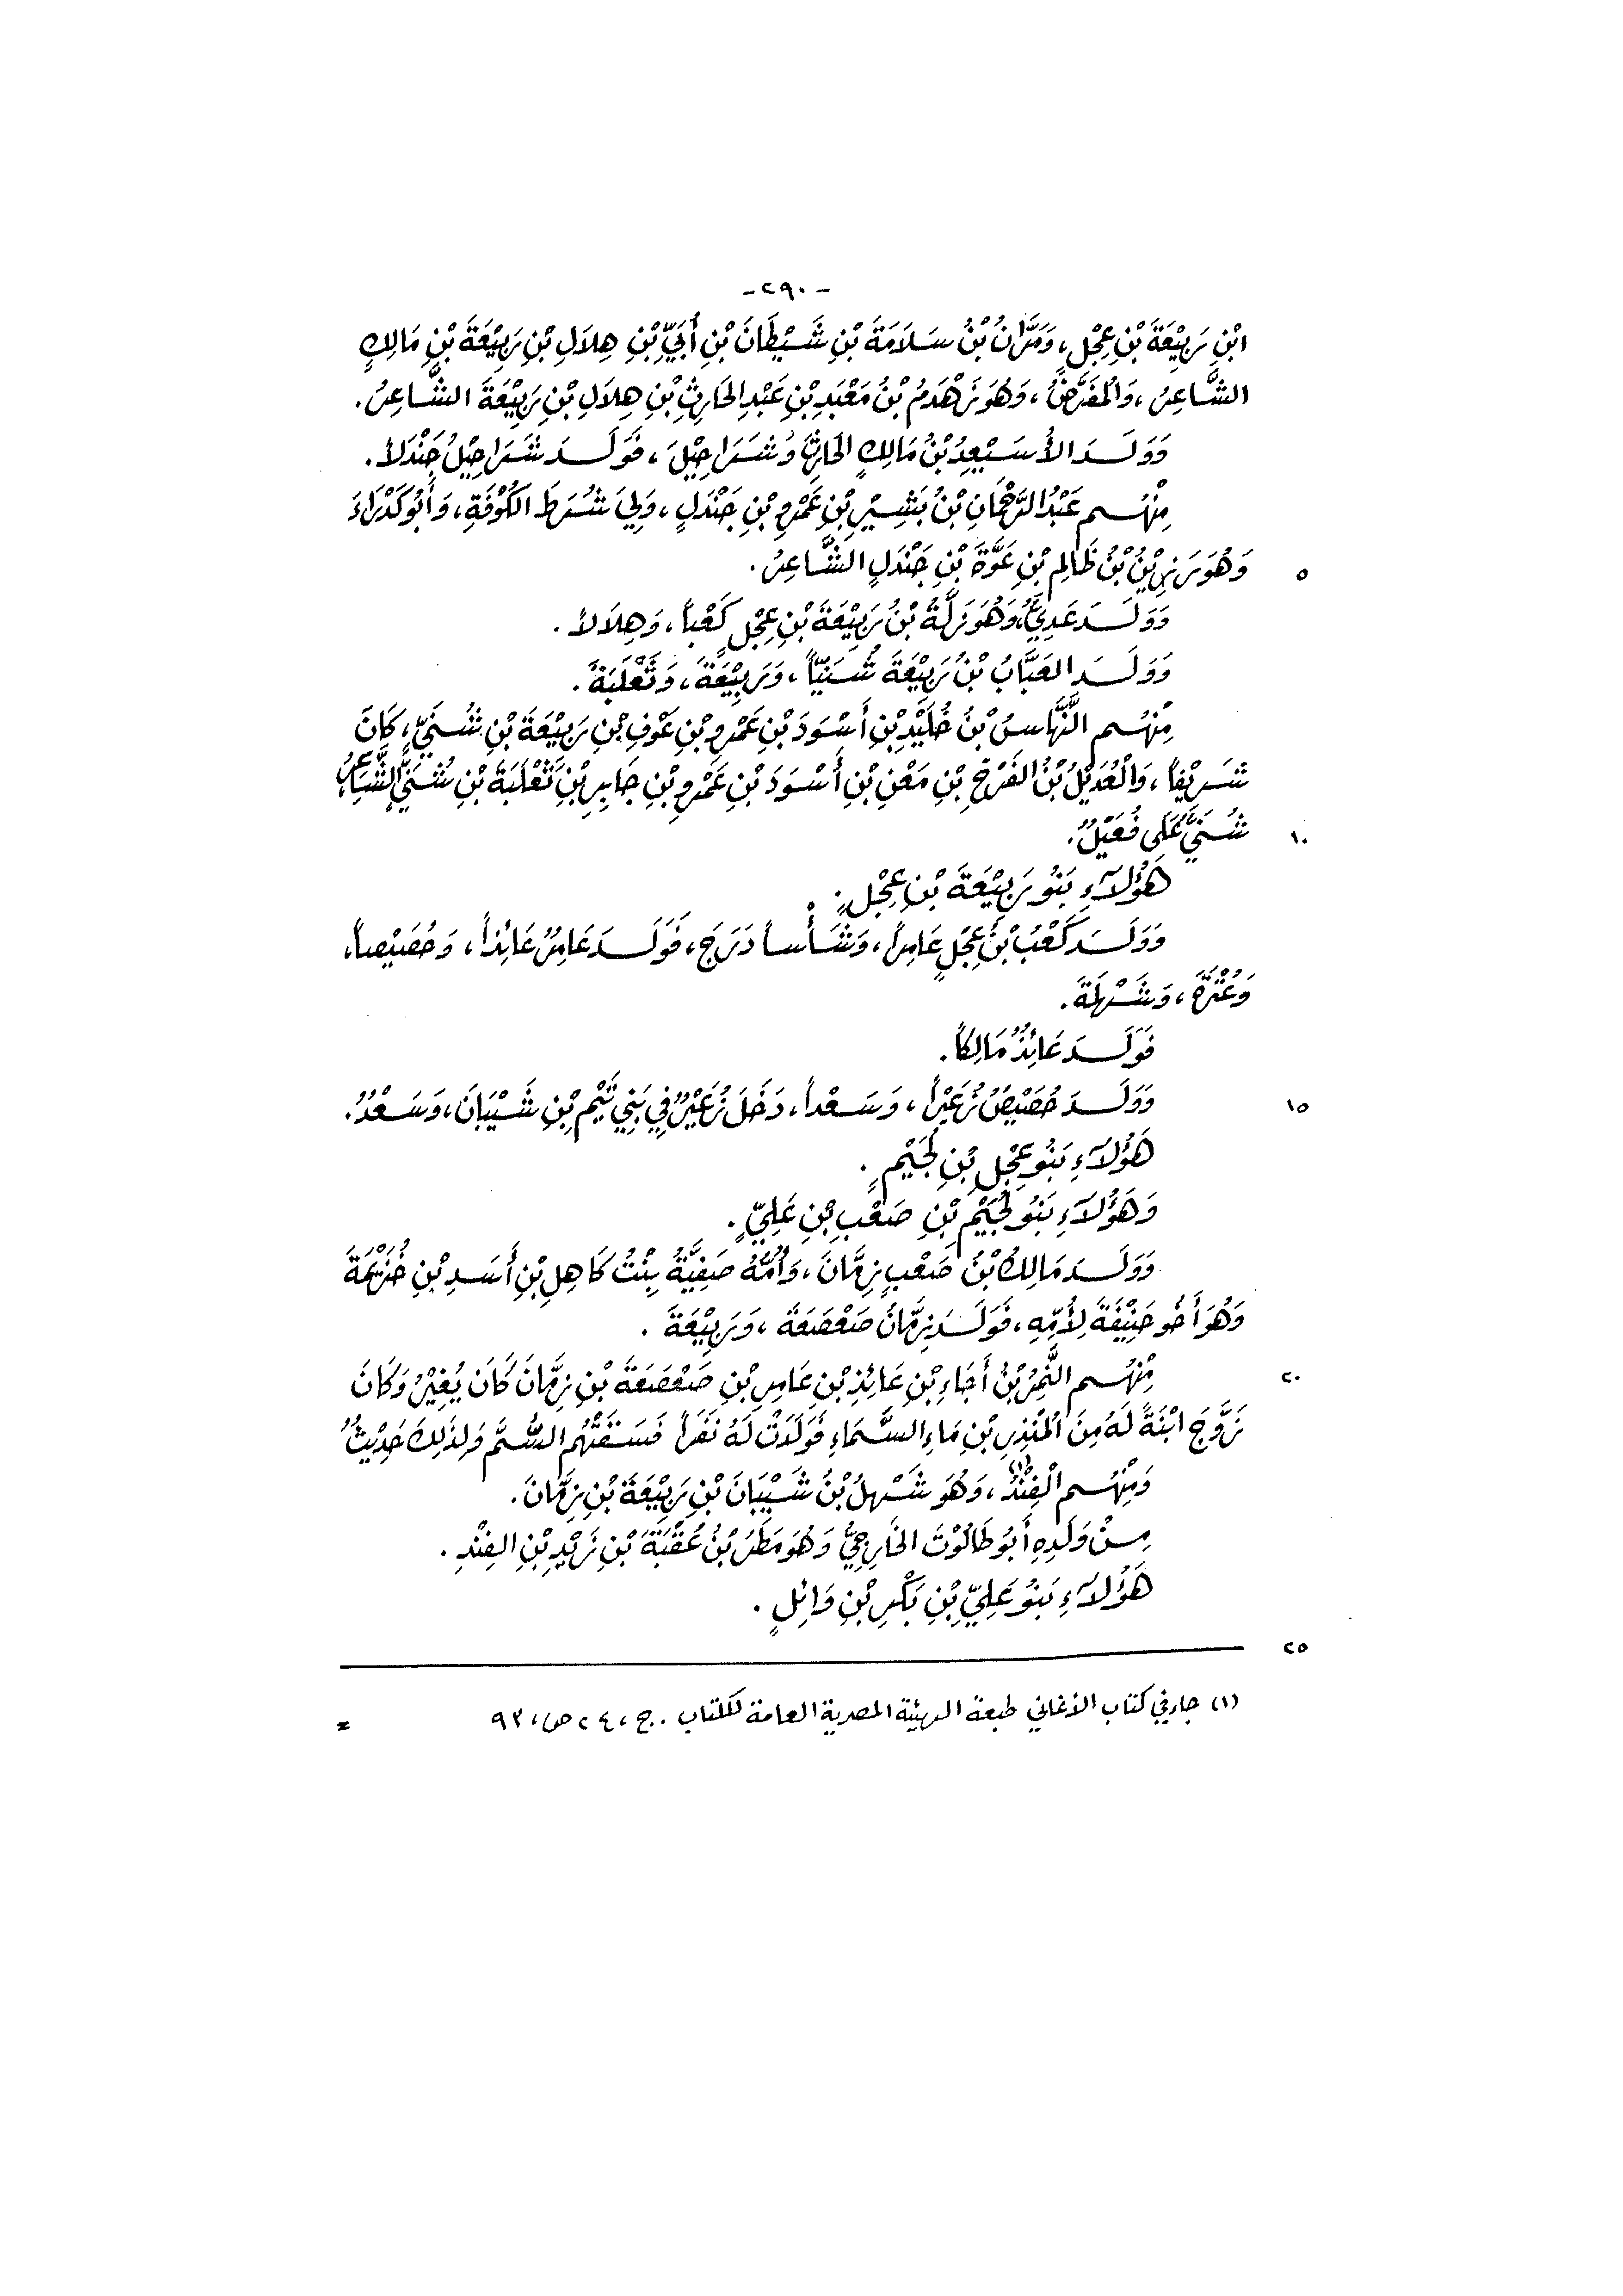 -٢٩٠-
ابْنِ رَبِيْعَةَ بْنِ عِجْلٍ، وَمَرَّانُ بْنُ سَلَامَةَ بْنِ شَيْطَانَ بْنِ أُبَيِّ بْنِ هِلَالِ بْنِ رَبِيْعَةَ بْنِ مَالِكٍ
الشَّاعِرُ، وَالْمُفَرَّضُ، وَهُوَ زَهْدَمُ بْنُ مَعْبَدِ بْنِ عَبْدِ الحَارِثِ بْنِ هِلَالِ بْنِ رَبِيْعَةَ الشَّاعِرُ.
وَوَلَدَ الأُسَيْعِدُ بْنُ مَالِكٍ الحَارِثَ وَشَرَاحِيْلَ، فَوَلَدَ شَرَاحِيْلُ جَنْدَلاً.
مِنْهُم عَبْدُ الرَّحْمَانِ بْنُ بَشِيْرِ بْنِ عَمْرِو بْنِ جَنْدَلٍ، وَلِيَ شُرَطَ الكُوْفَةِ، وَأَبُو كَدْرَاءَ
وَهُوَ رَزِيْنُ بْنُ ظَالِمِ بْنِ عَوَّةَ بْنِ جَنْدَلٍ الشَّاعِرُ.
٥
وَوَلَدَ عَدِيٌّ، وَهُوَ زَلَّةُ بْنُ رَبِيْعَةَ بْنِ عِجْلٍ كَعْباً، وَهِلَالاً.
وَوَلَدَ العَبَّابُ بْنُ رَبِيْعَةَ شُنَيّاً، وَرَبِيْعَةَ، وَثَعْلَبَةَ.
مِنْهُم النَّهَّاسُ بْنُ خُلَيْدِ بْنِ أَسْوَدَ بْنِ عَمْرِو بْنِ عَوْفِ بْنِ رَبِيْعَةَ بْنِ شُنَيٍّ، كَانَ
شَرِيْفاً، وَالْعُدَيْلُ بْنُ الفَرْخِ بْنِ مَعْنِ بْنِ أَسْوَدَ بْنِ عَمْرِو بْنِ جَابِرِ بْنِ ثَعْلَبَةَ بْنِ شُنَيٍّ الشَّاعِرُ
شُنَيٌّ عَلَى فُعَيْلٍ.
١٠
هَؤُلَاءِ بَنُو رَبِيْعَةَ بْنِ عِجْلٍ.
وَوَلَدَ كَعْبُ بْنُ عِجْلٍ عَامِراً، وَشَأْساً دَرَجَ، فَوَلَدَ عَامِرٌ عَائِذاً، وَحُصَيْصاً،
وَعُتْرَةَ، وَشَهْلَةَ.
فَوَلَدَ عَائِذٌ مَالِكاً.
وَوَلَدَ حُصَيْصٌ زُعَيْراً، وَسَعْداً، دَخَلَ زُعَيْرٌ فِي بَنِي تَيْمِ بْنِ شَيْبَانَ، وَسَعْدٌ.
١٥
هَؤُلَاءِ بَنُو عِجْلِ بْنِ لُجَيْمٍ.
وَهَؤُلَاءِ بَنُو لُجَيْمِ بْنِ صَعْبِ بْنِ عَلِيٍّ.
وَوَلَدَ مَالِكُ بْنُ صَعْبٍ زِمَّانَ، وَأُمُّهُ صَفِيَّةُ بِنْتُ كَاهِلِ بْنِ أَسَدِ بْنِ خُزَيْمَةَ
وَهُوَ أَخُو حَنِيْفَةَ لِأُمِّهِ، فَوَلَدَ زِمَّانُ صَعْصَعَةَ، وَرَبِيْعَةَ.
مِنْهُم النَّمِرُ بْنُ أَجَاءِ بْنِ عَائِذِ بْنِ عَامِرِ بْنِ صَعْصَعَةَ بْنِ زِمَّانَ كَانَ يُغِيْرُ وَكَانَ
٢٠
زَوَّجَ ابْنَةً لَهُ مِنَ الْمُنْذِرِ بْنِ مَاءِ السَّمَاءِ فَوَلَدَتْ لَهُ نَفَراً فَسَقَتْهُم السُّمَّ وَلِذَلِكَ حَدِيْثٌ
وَمِنْهُم الْفِنْدُ(١)، وَهُوَ شَهْلُ بْنُ شَيْبَانَ بْنِ رَبِيْعَةَ بْنِ زِمَّانَ.
مِنْ وَلَدِهِ أَبُو طَالُوْتَ الخَارِجِيُّ وَهُوَ مَطَرُ بْنُ عُقْبَةَ بْنِ زَيْدِ بْنِ الفِنْدِ.
هَؤُلَاءِ بَنُو عَلِيِّ بْنِ بَكْرِ بْنِ وَائِلٍ.
٢٥
(١) جاء في كتاب الأغاني طبعة الهيئة المصرية العامة للكتاب. ج، ٢٤ ص، ٩٣ =